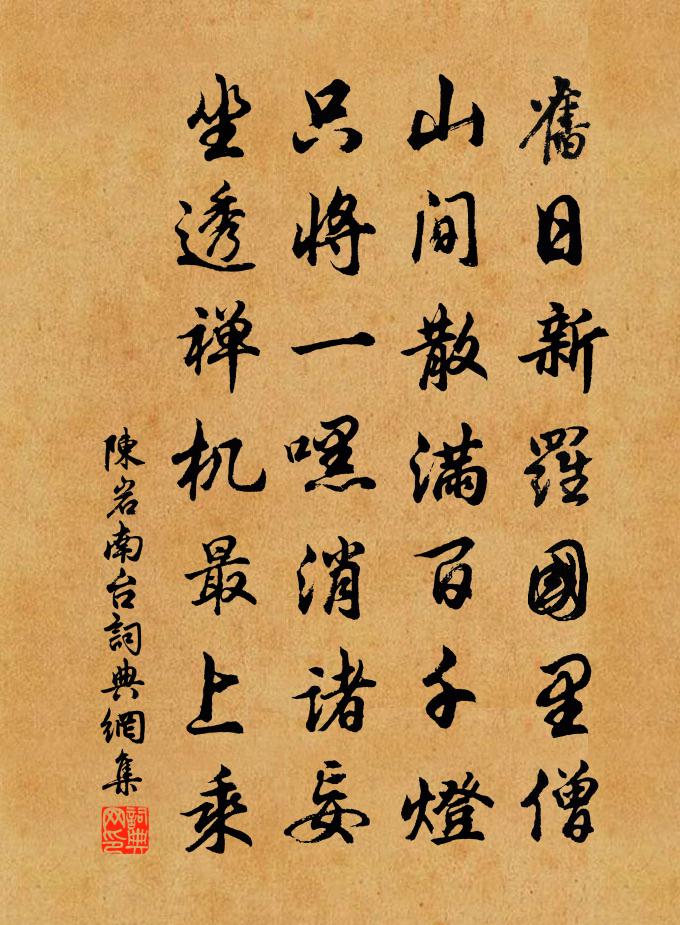 舊日新羅國里僧
山間散滿百千燈
只將一嘿消諸妄
坐透禅机最上乘
陳岩南台詞典網集
詞典网印